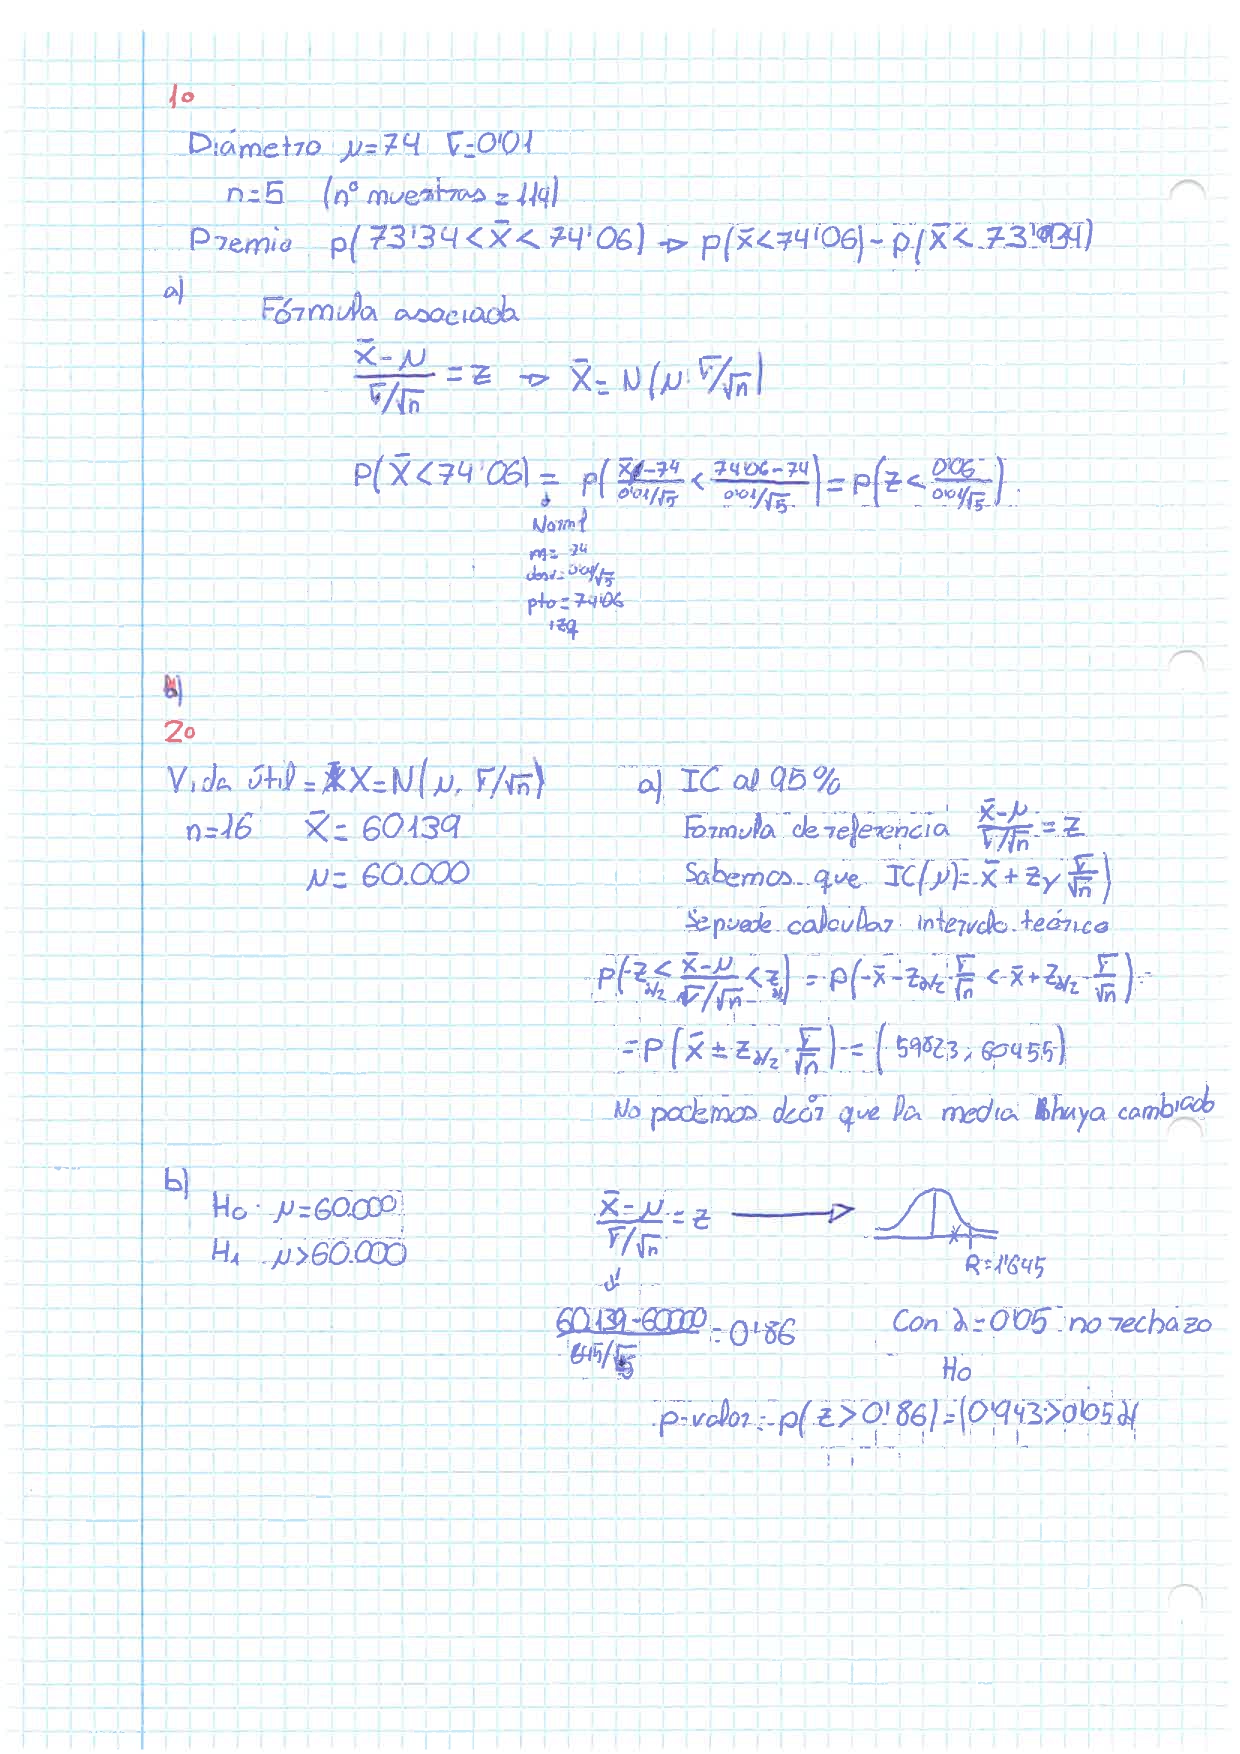 1º
Diámetro μ=74 σ=0'01
n=5 (nº muestras = 114)
Premio p(73'34 < x̄ < 74'06) → p(x̄<74'06) - p(x̄< 73'34)
a)
Fórmula asociada
(x̄-μ)/(σ/√n) = z → x̄ = N(μ, σ/√n)
P(x̄<74'06) = p((x̄-74)/(0'01/√5) < (74'06-74)/(0'01/√5)) = p(z < 0'06/(0'01/√5))
↓
Norml
m= 74
desv=0'01/√5
pto=74'06
izq
b)
2º
Vida útil = X=N(μ, σ/√n)
n=16 x̄= 60139
μ= 60.000
a) IC al 95%
Fórmula de referencia (x̄-μ)/(σ/√n) = z
Sabemos que IC(μ)= x̄ + z σ/√n)
Se puede calcular intervalo teórico
p(-z α/2 < (x̄-μ)/(σ/√n) < z α/2) = p(-x̄-z α/2 · σ/√n < -x̄+z α/2 · σ/√n) =
= P(x̄ ± z α/2 · σ/√n) = (59823, 60455)
No podemos decir que la media haya cambiado
b)
H0: μ=60.000
H1 μ>60.000
(x̄-μ)/(σ/√n) = z →
R=1'645
↓
(60139-60000)/(645/√) = 0'86
Con α=0'05 no rechazo
H0
p-valor = p(z>0'86) = (0'1943>0'05 α